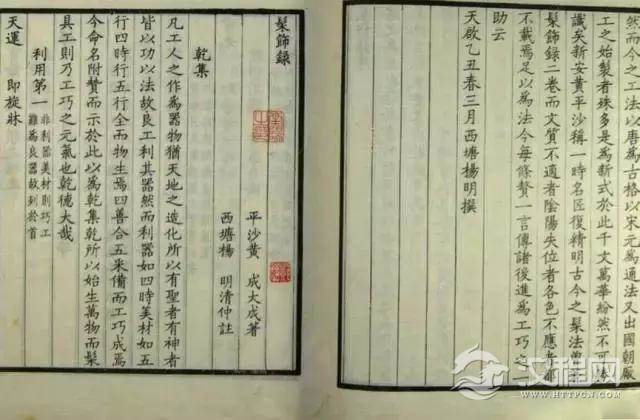 然而今之工法以唐為古格以宋元為通法又出國朝厰
工之始製者殊多是為新式於此千文萬華紛然不可
識矣新安黃平沙稱一時名匠復精明古今之髹法曾
髹飾錄二卷而文質不適者陰陽失位者各色不應者都
不載焉足以為法今每條贅一言傳諸後進為工巧之
助云
天啟乙丑春三月西塘楊明撰
髹飾録
平沙黃 成大成著
西塘楊 明清仲註
乾集
凡工人之作為器物猶天地之造化所以有聖者有神者
皆以功以法故良工利其器然而利器如四時美材如五
行四時行五行全而物生焉四善合五采備而工巧成焉
今命名附贊而示於此以為乾集乾所以始生萬物而髹
具工則乃工巧之元氣也乾德大哉
利用第一 非利器美材則巧工
難為良器故列於首
天運 即旋牀
汉程网
HTTPCN.COM